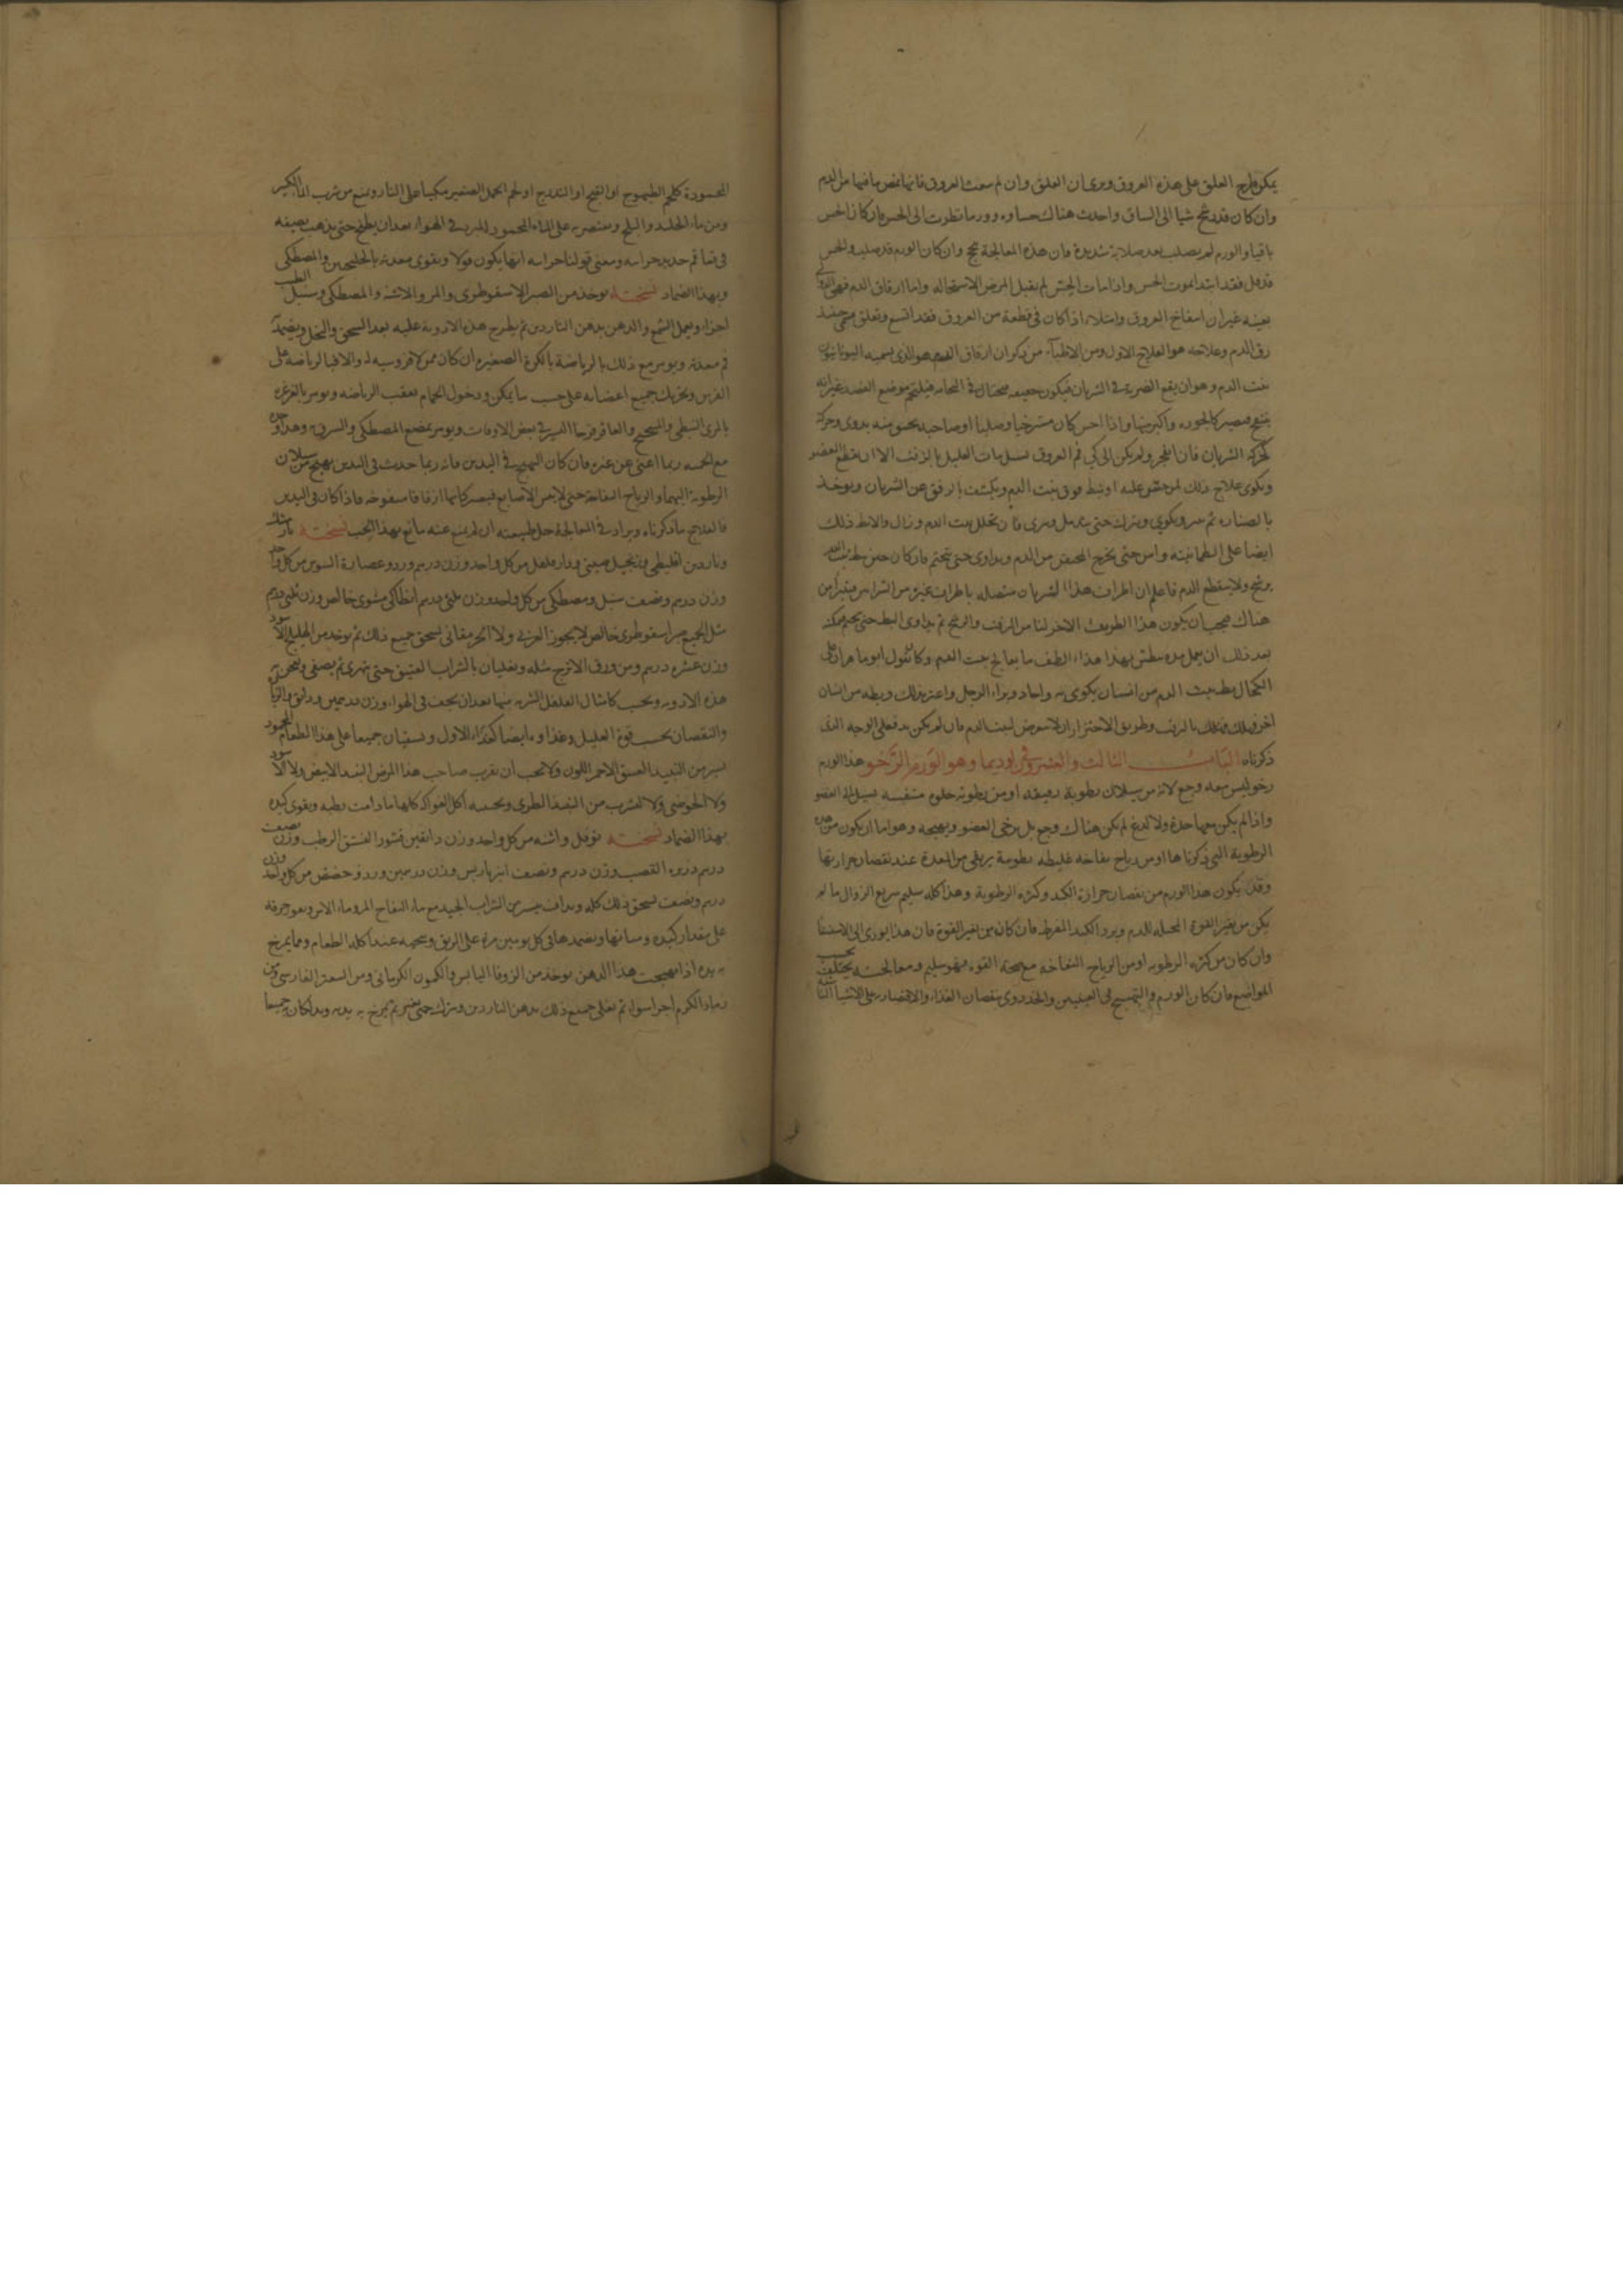 يمكن طرح العلق على هذه العروق ويرى ان العلق وان لم سعث العروق فانها تمص ما فيها من الدم
وان كان قد رشح شيا الى الساق واحدث هناك حساوه وورما نظرت الى الحس فان كان الحس
باقيا والورم لم يصلب بعد صلابة شديدة فان هذه المعالجة تنجح وان كان الورم قد صلب والحس
قد قل فقد ابتدا بموت الحس واذا مات الحس لم يقبل المرض الاستحالة واما ارقاق الدم فهى
بعينه غير ان انتفاخ العروق وامتلاء اذا كان فى قطعة من العروق فقد اتسع وتعلق
رق الدم وعلاجه هو العلاج الاول ومن الاطباء من ذكر ان ارقاق الدم هو الذى يسميه اليونانيون
بنت الدم وهو ان يقع الضربة فى الشريان فيكون فيلتحم موضع الفصد غير انه
ينتفخ فيصير كالجوزه واكبر منها واذا احس كان مسترخيا وصلبا وصاحبه يحس منه بدوى وحركة
كحركة الشريان فان انفجر ولم يكن الى كى فم العروق سبيل مات العليل بالنزف الا ان يقطع العضو
ويكوى علاج ذلك لمن جسر عليه ان يبط فوق بنت الدم ويكشف بالرفق عن الشريان ويوخذ
بالصناره ثم يبتر ويكوى ويترك حتى يندمل ويرى فان تحلل بنت الدم وزال والا بط ذلك
ايضا على الطمانينة وامن حتى يخرج المحتقن من الدم ويداوى حتى يلتحم فان كان حين بط بنت الدم
يرشح ولا ينقطع الدم فاعلم ان اطراف هذا الشريان متصله باطراف غيره من الشرايين
هناك فيجب ان يكون هذا الطريق الاخر لنا من النزف والرشح ثم يداوى البط حتى يلتحم
بعد ذلك ان يعمل بهذا هذا الطف ما يعالج بنت الدم وكان يقول ابو ماهر ان على
الكحال بط بنت الدم من انسان بكوى به واحاد وبراء الرجل واعتر بذلك وبطه من انسان
اخر فهلك بالنزف وطريق الاحتراز ان لا تتعرض لبنت الدم فان لم يكن بد فعلى الوجه الذى
ذكرناه الباب الثالث والعشرون فى اوذيما وهو الورم الرخو هذا الورم
رخو ليس معه وجع لانه من سيلان رطوبة رقيقه او من رطوبة حلوه متنفسه تسيل الى العضو
واذا لم يكن معها حدة ولا لدغ لم يكن هناك وجع بل يرخى العضو ويهيجه وهو اما ان يكون من هذه
الرطوبة التى ذكرناها او من رياح نفاخه غليظه رطوبية يرتقى من المعدة عند نقصان حرارتها
وقد يكون هذا الورم من نقصان حرارة الكبد وكثرة الرطوبة وهذا كله سليم سريع الزوال ما لم
يكن من تغير القوة المحيله للدم وبرد الكبد المفرط فان كان من تغير القوة فان هذا يودى الى الاستسقا
وان كان من كثرة الرطوبه او من الرياح النفاخه مع صحة القوه فهو سليم ومعالجته تختلف بحسب
المواضع فان كان الورم والتهيج فى العينين والخد روى بنقصان الغذاء والاقتصار على الاشيا
المحمودة كلحم الطيهوج او القبج او التدرج او لحم الحمل الصغير مكببا على النار ويمنع من شرب الما الكثير
ومن ماء الجليد والثلج ويقتصر به على الماء المحمود المبرد فى الهواء بعد ان يطبخ حتى يذهب نصفه
فى فما قم حديد خراسه ومعنى قولنا خراسه انها يكون فولا ويقوى معدته بالجلنجبين والمصطكى
وبهذا الضماد نسخته يوخذ من الصبر الاسقوطرى والمر والاشنه والمصطكى وسنبل الطيب
اجزاء ويعمل الشمع والدهن بدهن الناردين ثم يطرح هذه الادوية عليه بعد السحق والنخل ويضمد به
فم معدته ويومر مع ذلك بالرياضة بالكرة الصغيره ان كان ممن لا فروسية له والا فبالرياضه على
الفرس وتحريك جميع اعضائه على حسب ما يمكن ودخول الحمام بعقب الرياضه ويومر بالغرغره
بالمرى النبطى والسكنجبين والعاقرقرحا اليسير فى بعض الاوقات ويومر بمضغ المصطكى
مع الحميه ربما اغنى عن غيره فان كان التهيج فى اليدين فانه ربما حدث فى اليدين تهيج من سيلان
الرطوبة اليهما والرياح النفاخة حتى لا يقبض الاصابع فيصير كانها ازقاقا منفوخه فاذا كان فى اليدين
فالعلاج ما ذكرناه ويزاد فى المعالجة حل طبيعته ان لم يمنع عنه مانع بهذا الحب نسخته
وناردين اقليطى وزنجبيل صينى ودارفلفل من كل واحد وزن درهم ورد وعصارة السوس من كل واحد
وزن درهم ونصف سنبل ومصطكى من كل واحد وزن ثلثى درهم انطاكى مشوى خالص وزن ثلثى درهم
مثل الجميع صبر اسقوطرى خالص لا يجوز العربى ولا يسحق جميع ذلك ثم يوخذ من الهليلج الاسود
وزن عشره درهم ومن ورق الاترج مثله ويغليان بالشراب العتيق حتى يتهرى ثم يصفى ويعجن به
هذه الادويه ويحبب كامثال الفلفل الشربه منها بعد ان يجف فى الهواء وزن درهمين ودانق والزيادة
والنقصان بحسب قوة العليل وغذاوه ايضا كغذاء الاول ويسقيان جميعا على هذا الطعام المحمود
يسير من النبيذ العتيق الاحمر اللون ولا يجب ان يقرب صاحب هذا المرض النبيذ الابيض ولا الاسود
ولا الحوضى ولا القريب من النبيذ الطرى ويجنبه اكل الفواكه كلها ما دامت رطبه ويقوى كبده
بهذا الضماد نسخته فوفل واشنه من كل واحد وزن دانقين قشور الفستق الرطب وزن نصف
درهم ذريرة القصب وزن درهم ونصف انبرباريس وزن درهمين ورد وحضض من كل واحد وزن
درهم ونصف يسحق ذلك كله ويداف بيسير من الشراب الجيد مع ماء التفاح المر وماء الاس وبعو خرقه
على مقدار كبده ومسانها ويضمدها فى كل يومين مرة على الريق وينحيه عند اكله الطعام ومما يمرخ
به يده اذا تهيجت هذا الدهن يوخذ من الزوفا اليابس والكمون الكرمانى ومن السعتر الفارسى ومن
رماد الكرم اجزا سواء ثم يغلى جميع ذلك بدهن الناردين ويترك حتى يفتر ثم يمرخ به يديه ويدلكان جميعا